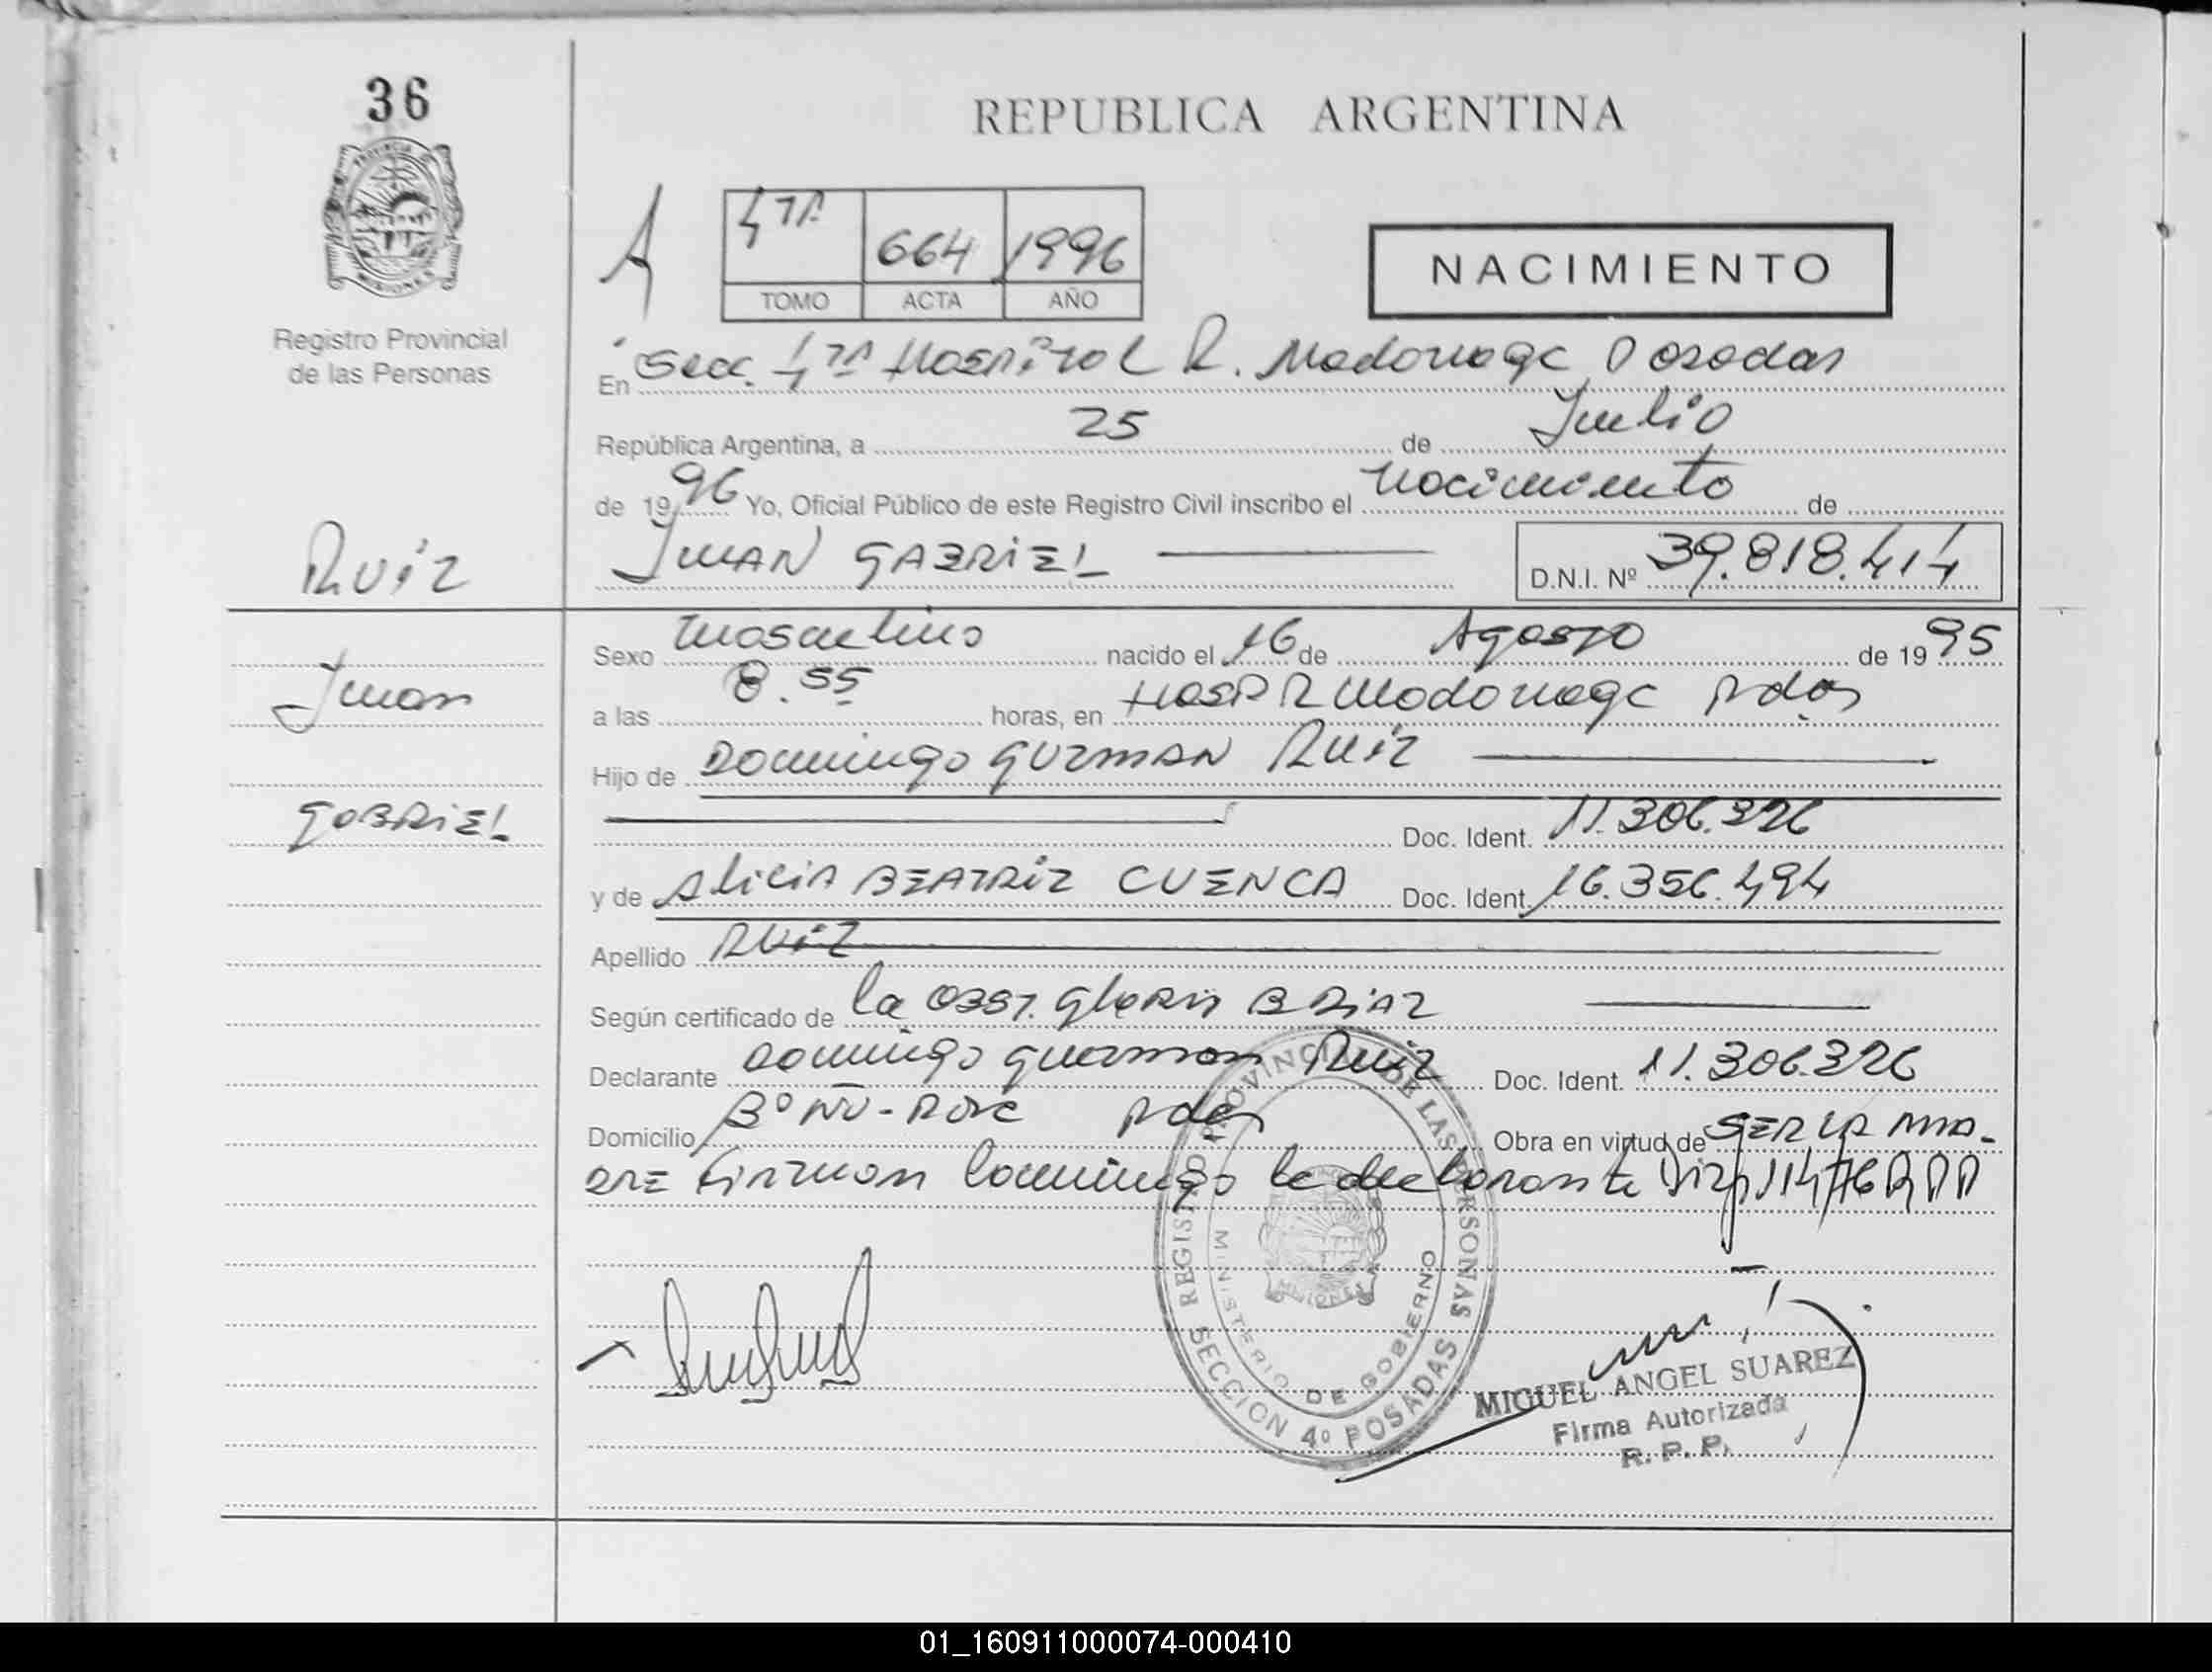 36
REPUBLICA ARGENTINA
PROVINCIA
MISIONES
Registro Provincial
de las Personas
A
4TA 664 1996
TOMO ACTA AÑO
NACIMIENTO
En Secc. 4TA Hospital R. Madariaga Posadas
República Argentina, a 25 de Julio
de 1996 Yo, Oficial Público de este Registro Civil inscribo el nacimiento de
Ruiz
JUAN GABRIEL
D.N.I. Nº 39.818.414
Sexo masculino nacido el 16 de Agosto de 1995
Juan
a las 8.55 horas, en Hosp R Madariaga Pdas
Hijo de Domingo GUZMAN RUIZ
GABRIEL
Doc. Ident. 11.306.326
y de Alicia BEATRIZ CUENCA Doc. Ident. 16.356.494
Apellido RUIZ
Según certificado de la OBST. Gloria B DIAZ
Declarante Domingo Guzman Ruiz Doc. Ident. 11.306.326
Domicilio Bº Pdas Obra en virtud de SER PA
DRE la declarante
REGISTRO PROVINCIAL DE LAS PERSONAS
MINISTERIO DE GOBIERNO
MISIONES
SECCION 4º POSADAS
MIGUEL ANGEL SUAREZ
Firma Autorizada
R. P. P.
01_160911000074-000410